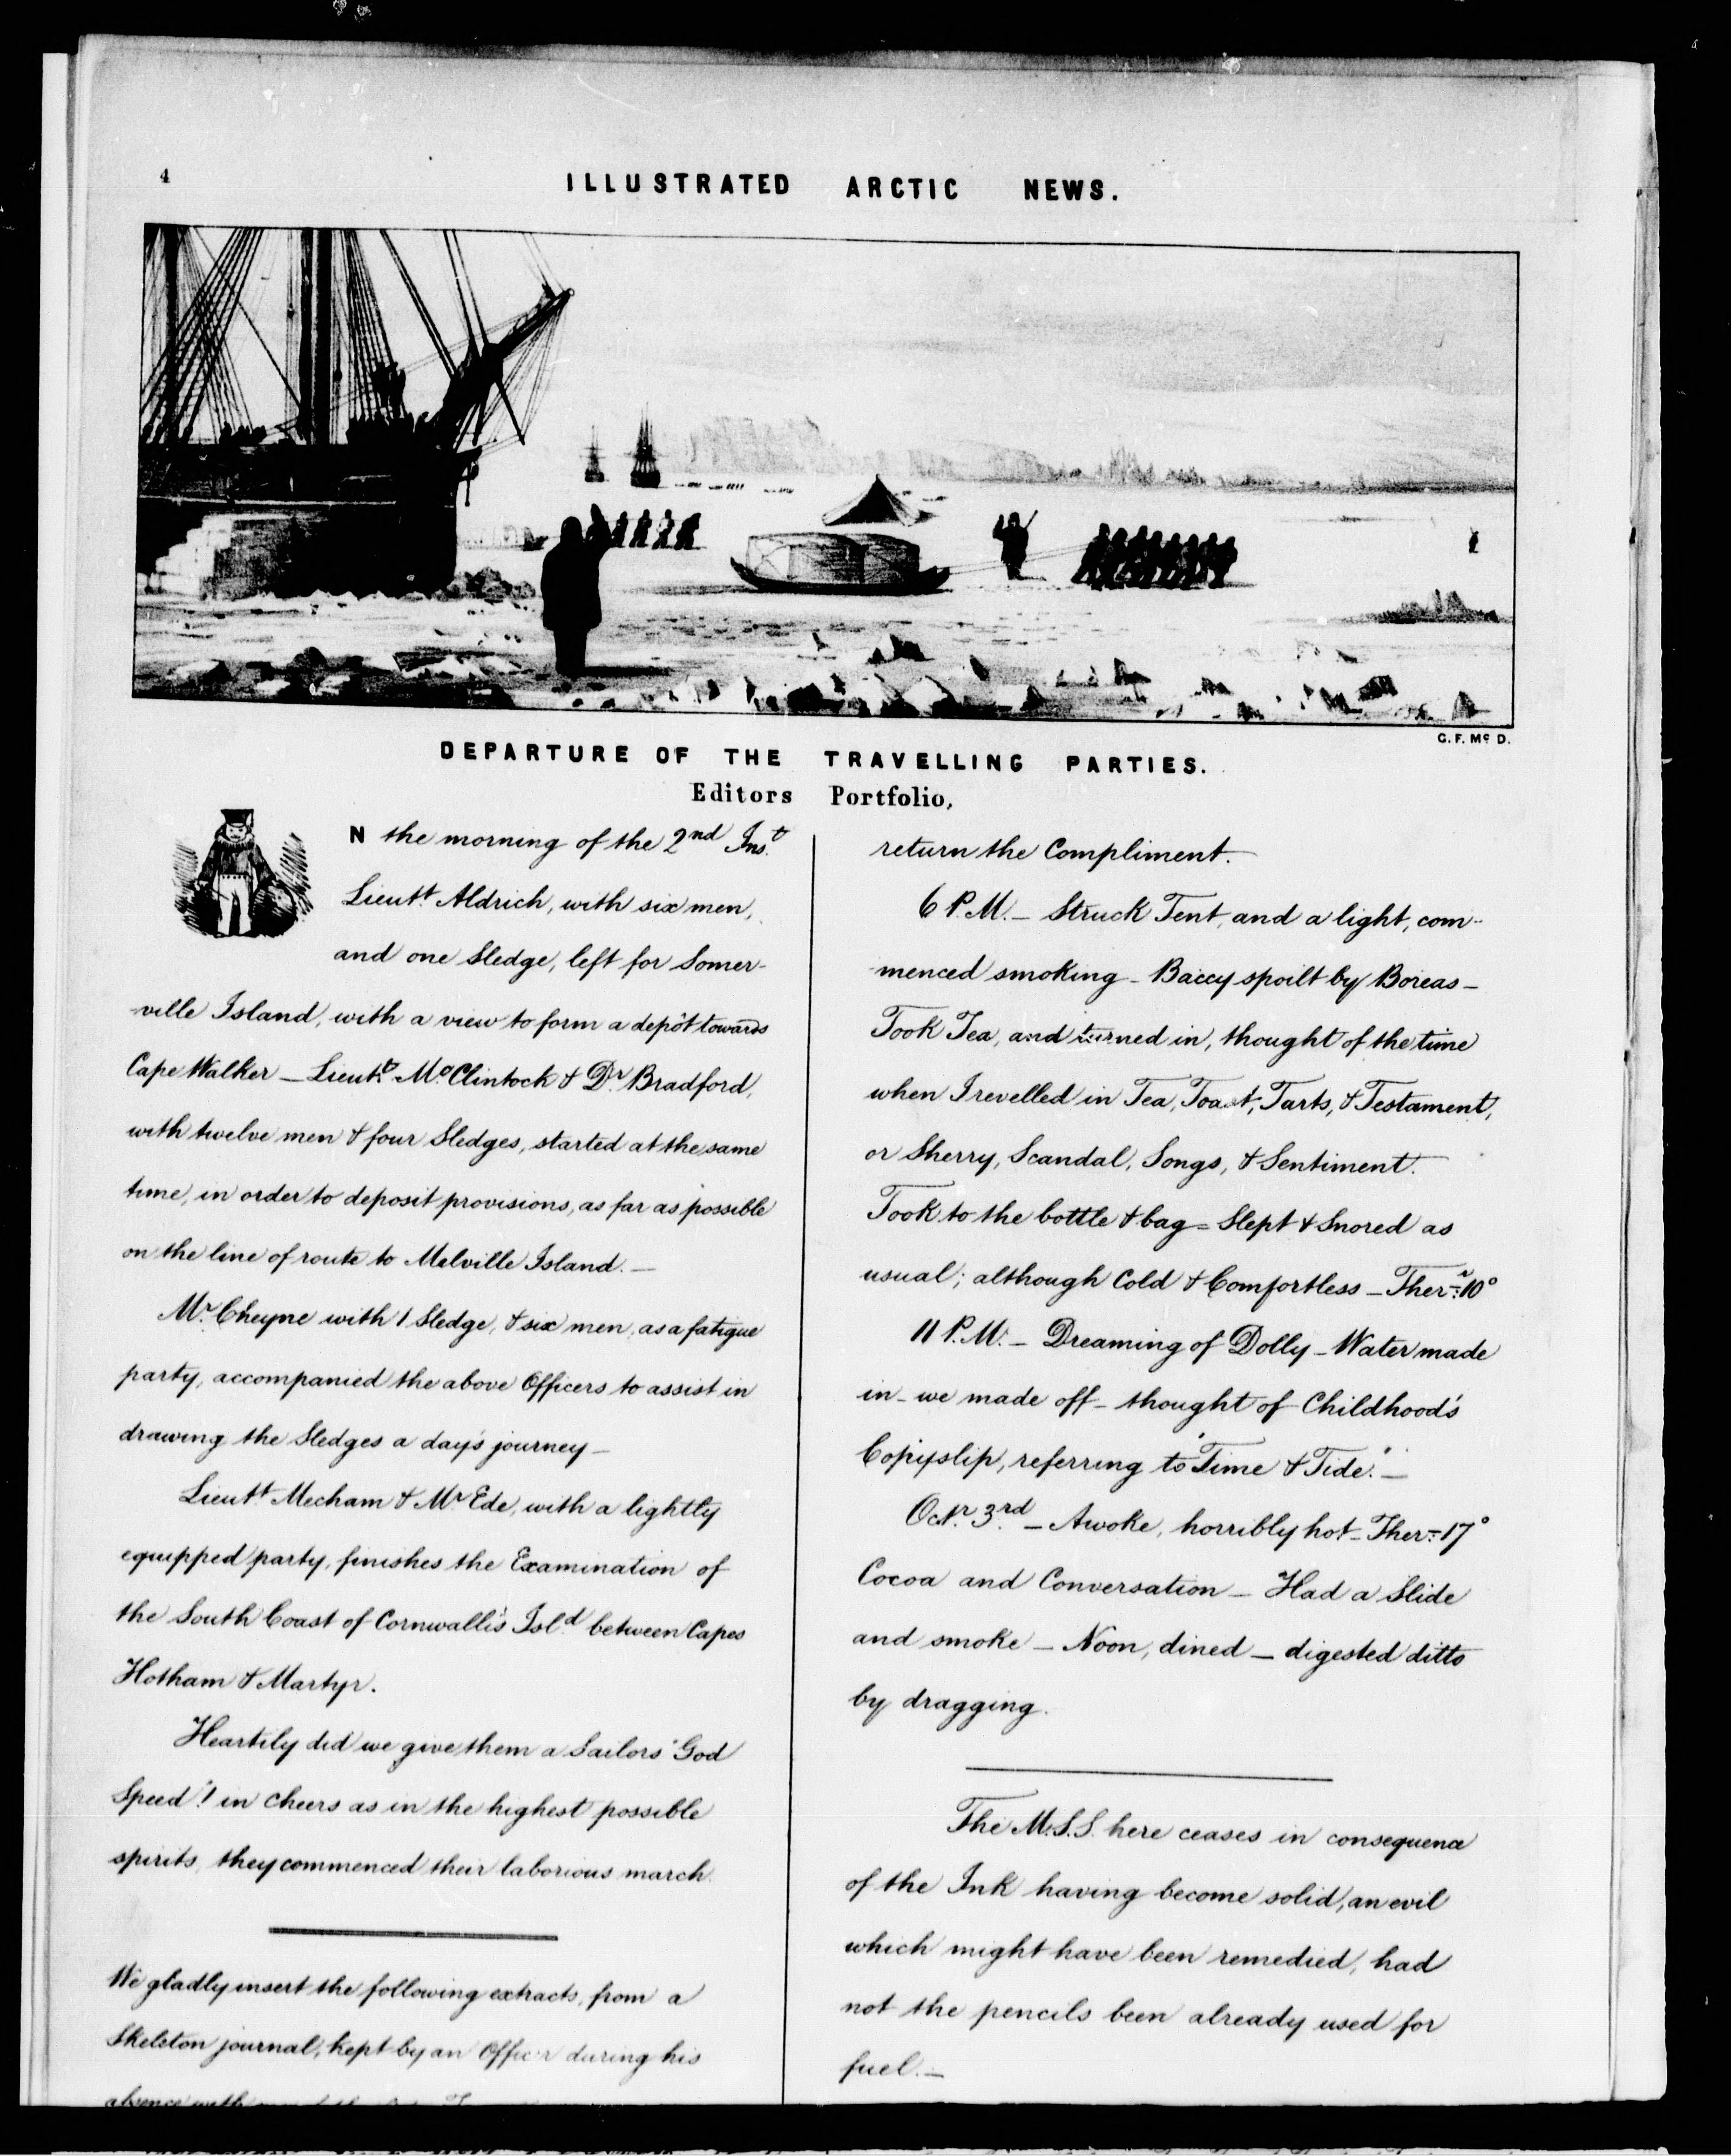 4
ILLUSTRATED ARCTIC NEWS.
G. F. Mc D.
DEPARTURE OF THE TRAVELLING PARTIES.
Editors Portfolio,
N the morning of the 2nd Inst.
Lieutt. Aldrich, with six men,
and one Sledge, left for Somer-
-ville Island, with a view to form a depôt towards
Cape Walker — Lieutt. McClintock & Dr. Bradford,
with twelve men & four Sledges, started at the same
time, in order to deposit provisions, as far as possible
on the line of route to Melville Island. —
Mr. Cheyne with 1 Sledge, & six men, as a fatigue
party, accompanied the above Officers to assist in
drawing the Sledges a day's journey —
Lieutt Mecham & Mr Ede, with a lightly
equipped party, finishes the Examination of
the South Coast of Cornwallis's Isld. between Capes
Hotham & Martyr.
Heartily did we give them a Sailors "God
Speed"! in cheers as in the highest possible
spirits, they commenced their laborious march.
We gladly insert the following extracts, from a
Skeleton journal, kept by an Officer during his
absence with
return the Compliment.
6 P.M. — Struck Tent, and a light, com-
menced smoking - Baccy spoilt by Boreas —
Took Tea, and turned in, thought of the time
when I revelled in Tea, Toast, Tarts, & Testament,
or Sherry, Scandal, Songs, & Sentiment.
Took to the bottle & bag = Slept & Snored as
usual; although Cold & Comfortless — Therr. 10°
11 P.M. — Dreaming of Dolly — Water made
in - we made off - thought of Childhood's
Copyslip, referring to "Time & Tide". —
Octr. 3rd. — Awoke, horribly hot — Ther. 17°
Cocoa and Conversation — Had a Slide
and smoke — Noon, dined — digested ditto
by dragging.
The M.S.S. here ceases in consequence
of the Ink having become solid, an evil
which might have been remedied, had
not the pencils been already used for
fuel. —